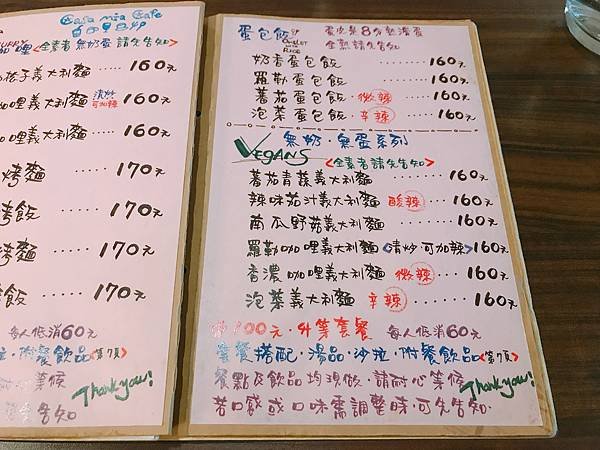 Casa mia Cafe
咖哩<全素者 無奶蛋 請先告知>
義大利麵 160元
義大利麵 清炒可加辣 160元
義大利麵 160元
烤麵 ...... 170元
烤飯 ...... 170元
烤麵 ...... 170元
飯 ...... 170元
每人低消60元
附餐飲品(第7頁)
等候
Thank you!
告知
蛋包飯 OMELET WITH RICE 蛋皮是8分熟滑蛋
全熟請先告知
奶香蛋包飯 160元
羅勒蛋包飯 160元
蕃茄蛋包飯·微辣 160元
泡菜蛋包飯·辛辣 160元
無奶·無蛋系列
VEGANS <全素者請先告知>
蕃茄青蔬義大利麵 160元
辣味茄汁義大利麵 酸辣 160元
南瓜野菇義大利麵 160元
羅勒咖哩義大利麵 <清炒可加辣> 160元
香濃咖哩義大利麵 微辣 160元
泡菜義大利麵 辛辣 160元
100元·升等套餐 每人低消60元
套餐搭配·湯品·沙拉·附餐飲品(第7頁)
餐點及飲品均現做·請耐心等候
Thank you!
若口感或口味需調整時·可先告知·